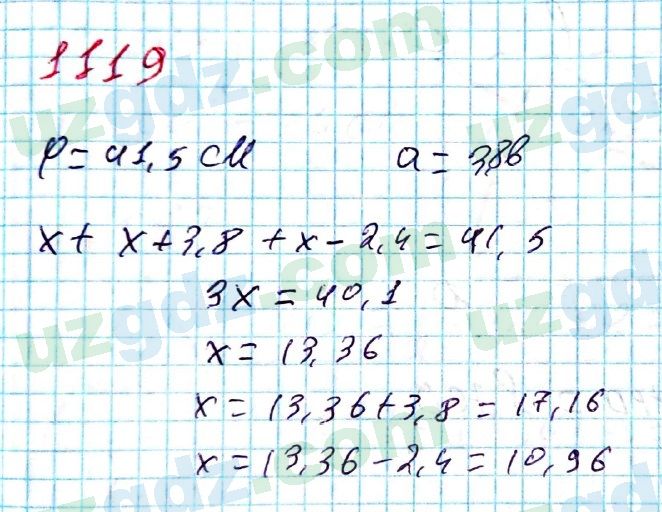 1119
P = 41,5 см   a = 3,8в
x + x + 3,8 + x - 2,4 = 41,5
3x = 40,1
x = 13,36
x = 13,36 + 3,8 = 17,16
x = 13,36 - 2,4 = 10,96
uzgdz.com